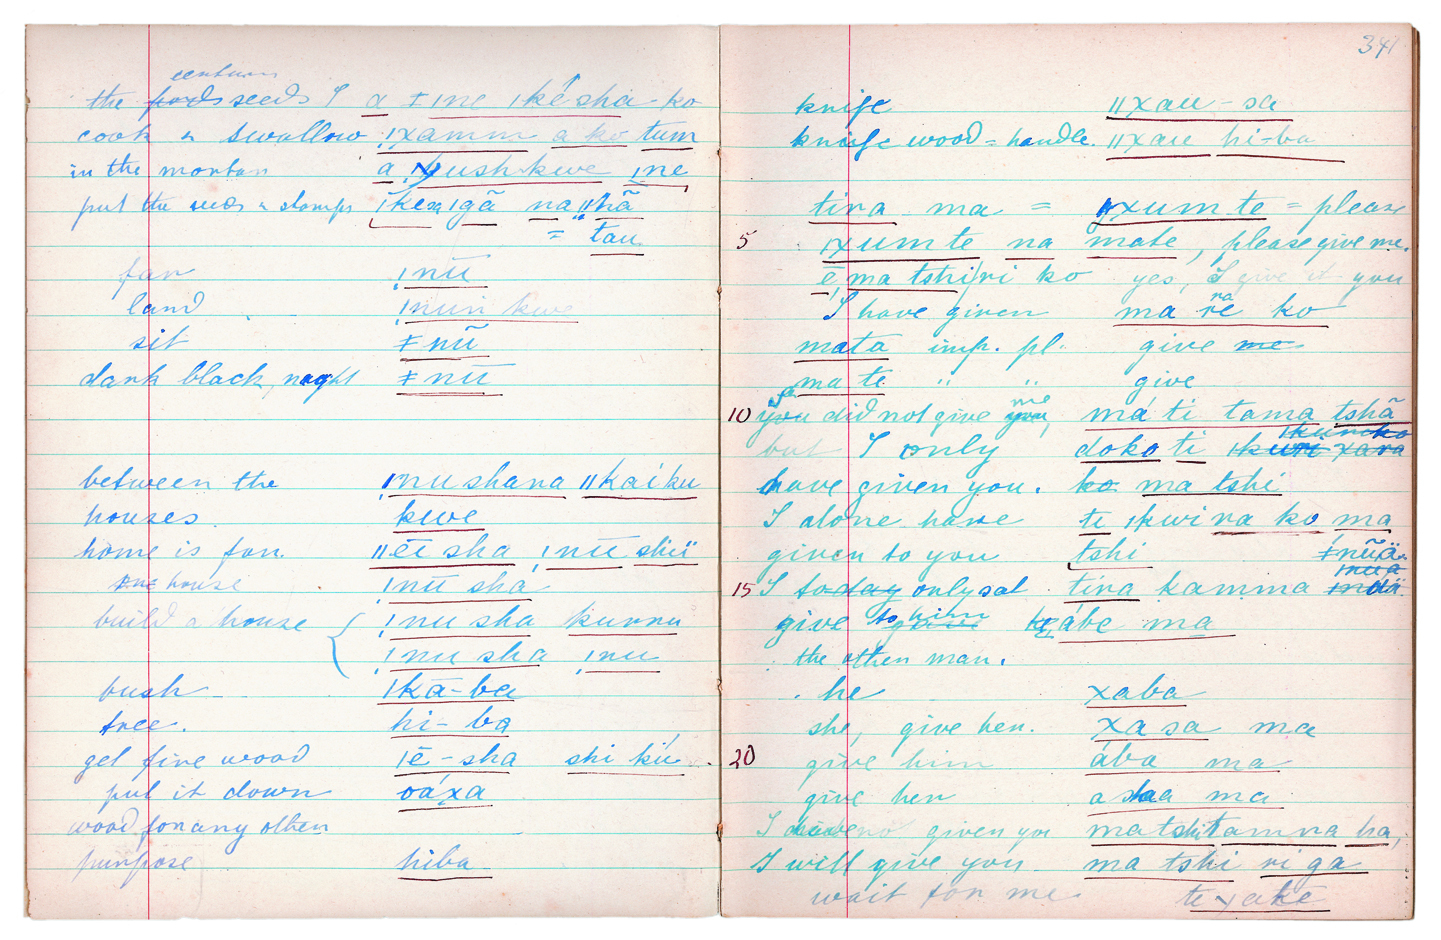 centum
the seeds I a ǂǀne ǀké sha - ko
cook & swallow ǀxamm a ko tum
in the mortar a ǀne
put the seeds & stamps na ǁhã
= tau.
far ǀnū
land ǀnuri kwe
sit ǂnũ
dark black, night ǂnū
between the ǀnu shana ǁkaíku
houses. kwe
home is far. ǁēi sha ǀnū shiï
house ǀnū sha
build a house ǀnu sha kurru
ǀnu sha ǀnu
bush ǀkā-ba
tree. hi-ba
get fire wood ǀē-sha shi kú
put it down oáxa
wood for any other
purpose hiba
341
knife ǁxau-sa
knife wood = handle. ǁxau hi-ba
tira ma = ǀxum te = please
5 ǀxum te na mate, please give me.
ē ma tshi ri ko yes, I give it you
I have given ma re ra ko
mata imp. pl. give me
ma te " " give
10 you did not give me, má ti tama tshā
but I only doko ti
have given you. ko ma tshi
I alone have te ǀkwi ra ko ma
given to you tshi ǂnũä.
15 I today only sat tíra kamma
give to him ábe ma
the other man.
he xaba
she, give her. xa sa ma
20 give him ába ma
give her ma
I given you matshitamna ha,
I will give you ma tshi ri ga
wait for me te ɣakē